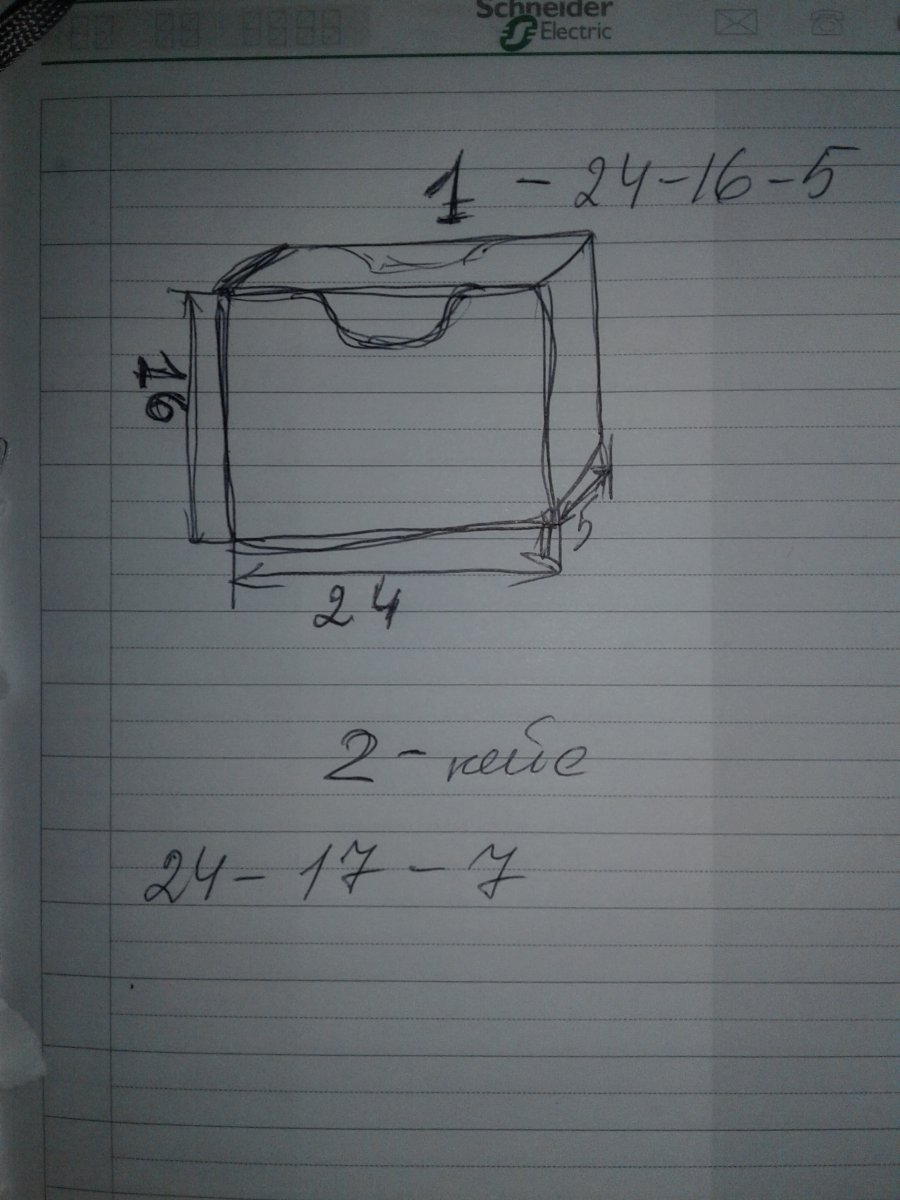 Schneider
Electric
1 - 24-16-5
16
5
24
2 - кейс
24 - 17 - 7